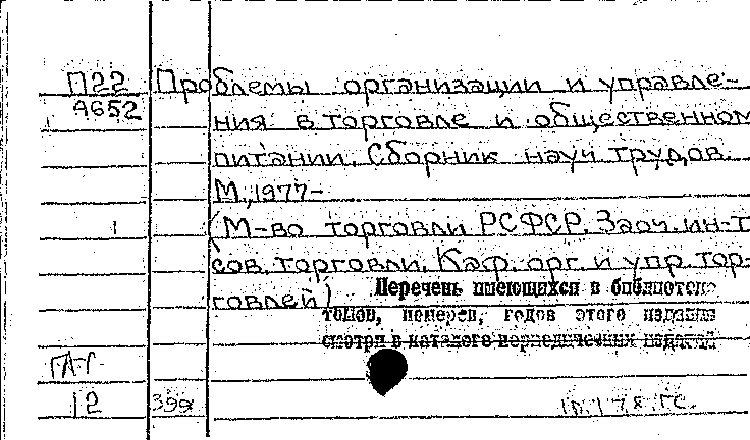 П22 Проблемы организации и управле-
9652
ния в торговле и общественном
питании. Сборник науч. трудов.
М., 1977-
(М-во торговли РСФСР. Заоч. ин-т
сов. торговли. Каф. орг. и упр. тор-
говлей)
Перечень имеющихся в библиотеке
томов, номеров, годов этого издания
смотри в каталоге периодических изданий
12 399